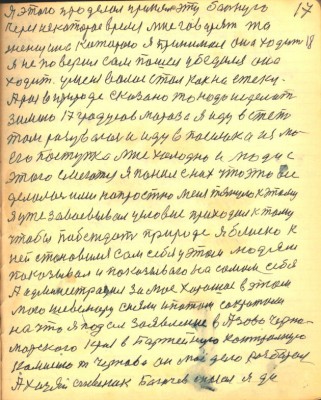 17
я этого проделал принял эту
через некоторое время мне говорят та
женщина которою я принимал она ходит
я не поверил сам пошел убедился она
ходит. у меня волос стал как на
А раз в природе сказано то надо делать
зимою 17 градусов мороза я иду в степ
там разувался и иду в посинка из мо
его поступка мне холодно и люди с
этого смеются я понял сами что это
делалось или напростно меня тянуло к этому
я уже завоевывал условие приходил к тому
чтобы побеждать природе я близко к
ней становился сам себя и этим людям
показывал и показываю на самим себя
А администрация за мое хорошое в этом
мою шевелюру сняли и потом сократили
на что я подал заявление в Азово Черно
морского края в Партейную контрольную
комисию т Чернова он мое дело разбирал
А хозяй союзник Багачев сказал я ди